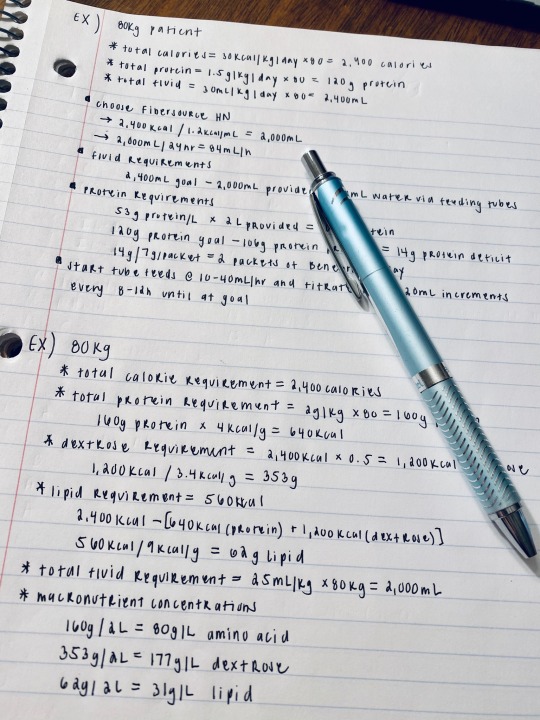 EX) 80kg patient
* total calories = 30kcal/kg/day × 80 = 2,400 calories
* total protein = 1.5g/kg/day × 80 = 120g protein
* total fluid = 30mL/kg/day × 80 = 2,400mL
• choose Fibersource HN
→ 2,400kcal/1.2kcal/mL = 2,000mL
→ 2,000mL/24hr = 84mL/h
• fluid requirements
2,400mL goal - 2,000mL provide mL water via feeding tubes
• protein requirements
53g protein/L × 2L provided =
120g protein goal - 106g protein = 14g protein deficit
14g/7g/packet = 2 packets of
• start tube feeds @ 10-40mL/hr and 20mL increments
every 8-12h until at goal
EX) 80kg
* total calorie requirement = 2,400 calories
* total protein requirement = 2g/kg × 80 = 160g
160g protein × 4kcal/g = 640kcal
* dextrose requirement = 2,400kcal × 0.5 = 1,200kcal
1,200kcal / 3.4kcal/g = 353g
* lipid requirement = 560kcal
2,400kcal - [640kcal (protein) + 1,200kcal (dextrose)]
560kcal/9kcal/g = 62g lipid
* total fluid requirement = 25mL/kg × 80kg = 2,000mL
* macronutrient concentrations
160g/2L = 80g/L amino acid
353g/2L = 177g/L dextrose
62g/2L = 31g/L lipid